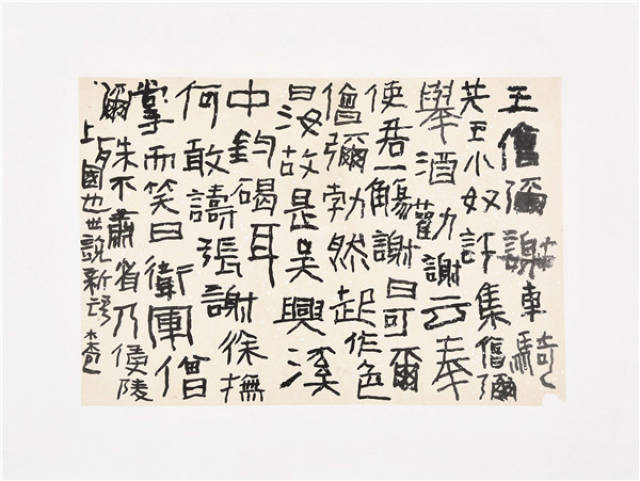 王僧彌謝車騎
共王小奴許集僧彌
舉酒勸謝云奉
使君一觴謝曰可爾
僧彌勃然起作色
曰汝故是吳興溪
中釣碣耳
何敢譸張謝徐撫
掌而笑曰衛軍僧
彌殊不肅省乃侵陵
上國也世說新語